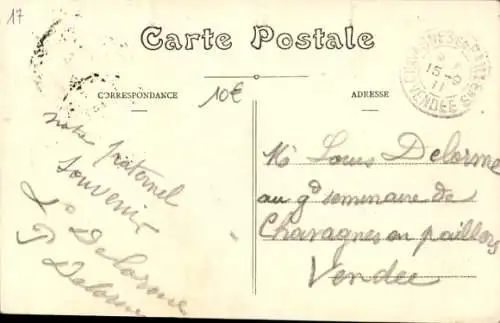 17
Carte Postale
CORRESPONDANCE
ADRESSE
10€
CHAVAGNES-EN-PAILLERS
15-9
11
VENDEE
notre fraternel
souvenir
Delorme
P Delorme
Mr Louis Delorme
au gd seminaire de
Chavagnes en paillers
Vendee